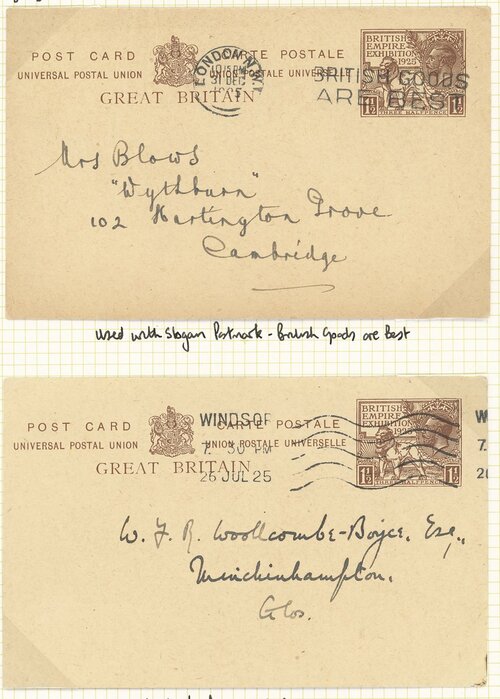 POST CARD
CARTE POSTALE
UNIVERSAL POSTAL UNION
UNION POSTALE UNIVERSELLE
GREAT BRITAIN
LONDON, N.W.1
10.15 PM
31 DEC
1925
BRITISH GOODS
ARE BEST
BRITISH
EMPIRE
EXHIBITION
1925
1½ 1½
THREE HALFPENCE
Mrs Blows
"Wythburn"
102 Hartington Grove
Cambridge
used with Slogan Postmark - British Goods are Best
POST CARD
CARTE POSTALE
UNIVERSAL POSTAL UNION
UNION POSTALE UNIVERSELLE
GREAT BRITAIN
WINDSOR
7. 30 PM
26 JUL 25
BRITISH
EMPIRE
EXHIBITION
1925
1½ 1½
THREE HALFPENCE
W
7.
2
W. F. R. Woollcombe-Boyce, Esq.,
Minchinhampton.
Glos.